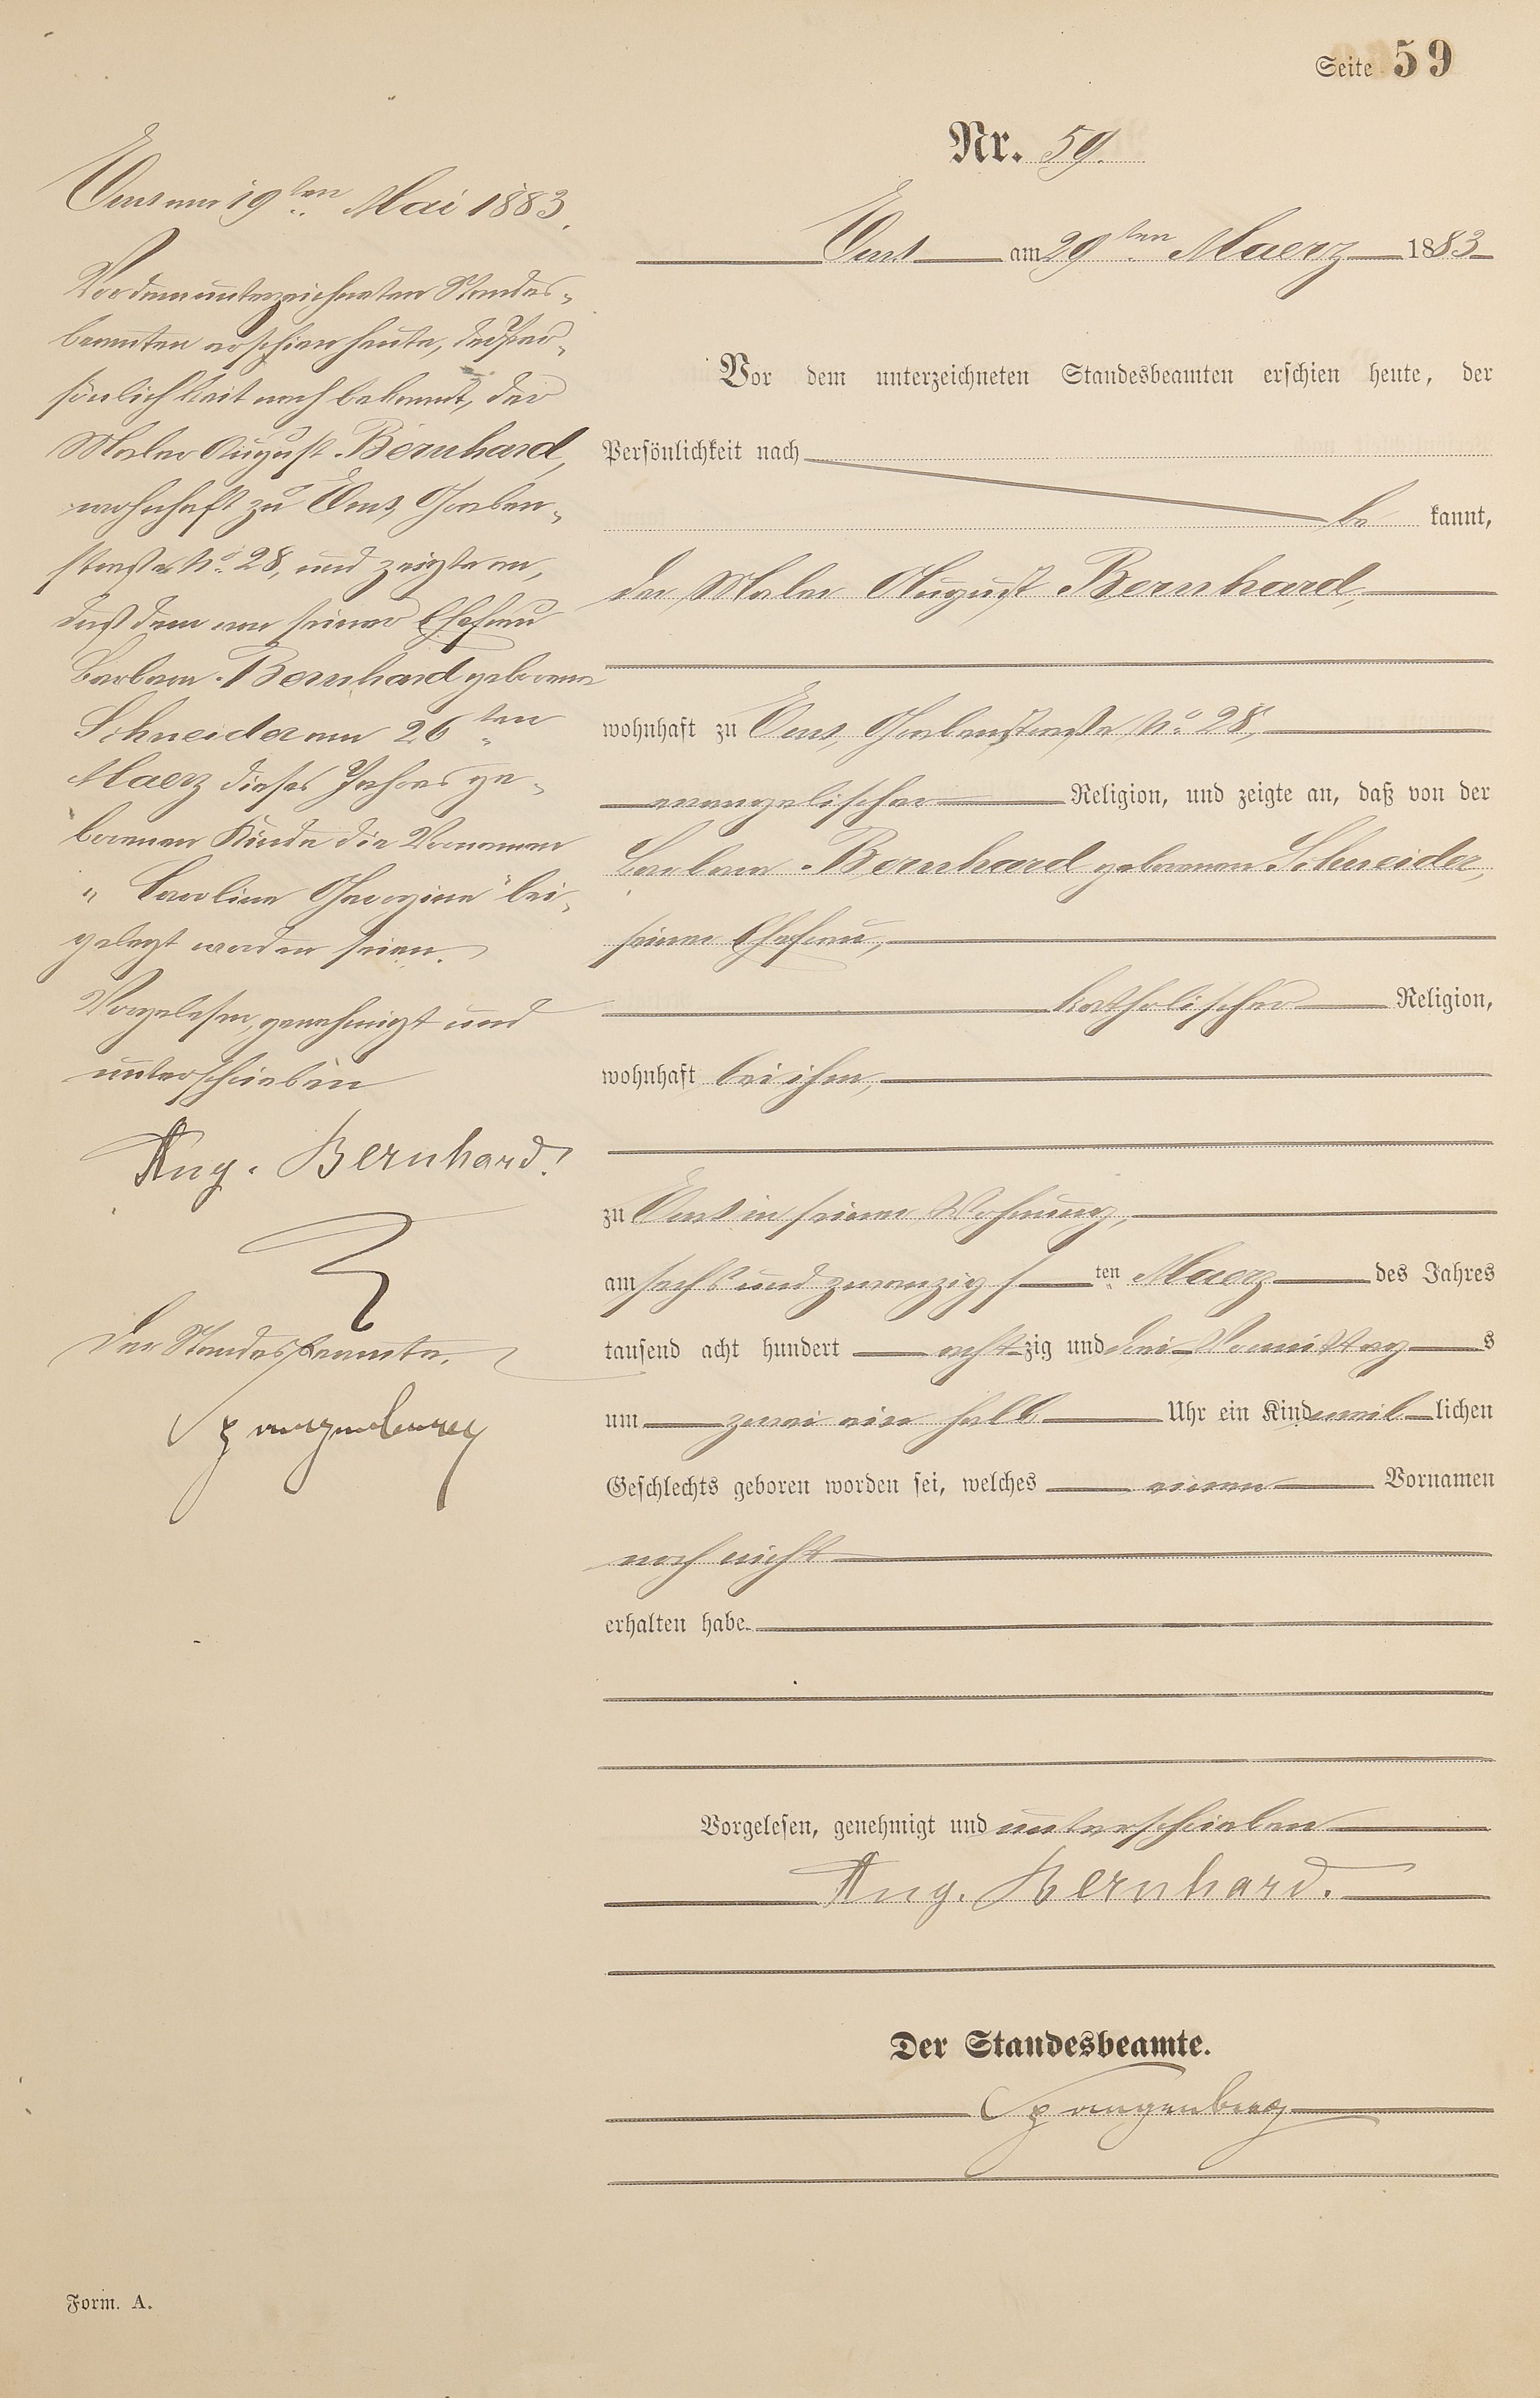 Seite 59
Nr. 59.
Ems am 29ten Maerz 1883
Vor dem unterzeichneten Standesbeamten erschien heute, der
Persönlichkeit nach
be kannt,
der Maler August Bernhard,
wohnhaft zu Ems, Grabenstraße No. 28,
evangelischer Religion, und zeigte an, daß von der
Barbara Bernhard geborenen Schneider,
seiner Ehefrau,
katholischer Religion,
wohnhaft bei ihm,
zu Ems in seiner Wohnung,
am sechs und zwanzigsten Maerz des Jahres
tausend acht hundert achtzig und drei Vormittags
um zwei ein halb Uhr ein Kind weiblichen
Geschlechts geboren worden sei, welches einen Vornamen
noch nicht
erhalten habe.
Vorgelesen, genehmigt und unterschrieben
Aug. Bernhard.
Der Standesbeamte.
Spangenberg
Ems am 19ten Mai 1883.
Vor dem unterzeichneten Standes-
beamten erschien heute, der Per-
sönlichkeit nach bekannt, der
Maler August Bernhard,
wohnhaft zu Ems, Graben-
straße No. 28, und zeigte an,
daß dem von seiner Ehefrau
Barbara Bernhard geborene
Schneider am 26ten
Maerz dieses Jahres ge-
borenen Kinde die Vornamen
"Caroline Georgine" bei-
gelegt worden seien.
Vorgelesen, genehmigt und
unterschrieben
Aug. Bernhard.
Der Standesbeamte.
Spangenberg
Form. A.